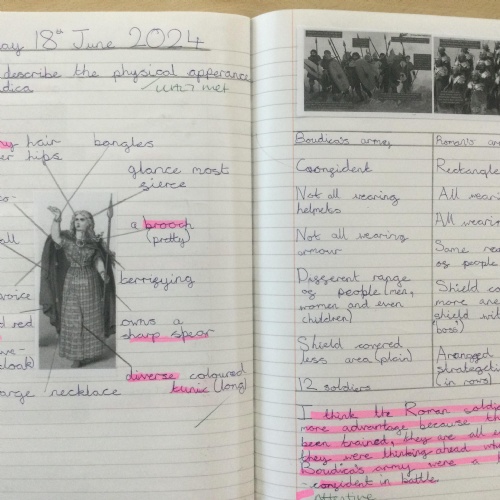 ay 18th June 2024
describe the physical apperance
dica
until met
hair
er hips
bangles
glance most
fierce
co-
a brooch
(pretty)
all
berrifying
voice
d red
owns a
sharp spear
ve-
cloak)
diverse coloured
tunic (long)
arge necklace
Boudica's army
Confident
Not all wearing
helmets
Not all wearing
armour
Different range
of people (men,
women and even
children)
Shield covered
less area (plain)
12 soldiers
Roman's ar
Rectangle
All weari
All wearin
Same ra
of people
Shield co
more and
shield wit
boss)
Arranged
strategeti
(in rows)
I think the Roman soldie
more advantage because th
been trained, they are all e
they were thinking ahead wh
Boudica's army were a
confident in battle